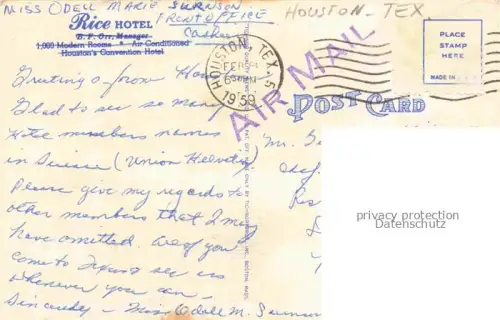 MISS ODELL MARIE
FRONT OFFICE
Cashier
HOUSTON - TEX.
Rice HOTEL
B. F. Orr, Manager
1,000 Modern Rooms * Air Conditioned
Houston's Convention Hotel
HOUSTON, TEX. 5
1959
AIR MAIL
PLACE
STAMP
HERE
MADE IN
POST CARD
Greeting from
Glad to see so many
Hotel members names
in Suisse (Union Helvetia)
Please give my regards to
other members that I may
have omitted. If you
come to Texas see us
whenever you can -
Sincerely - Miss Odell M.
Mr.
privacy protection
Datenschutz